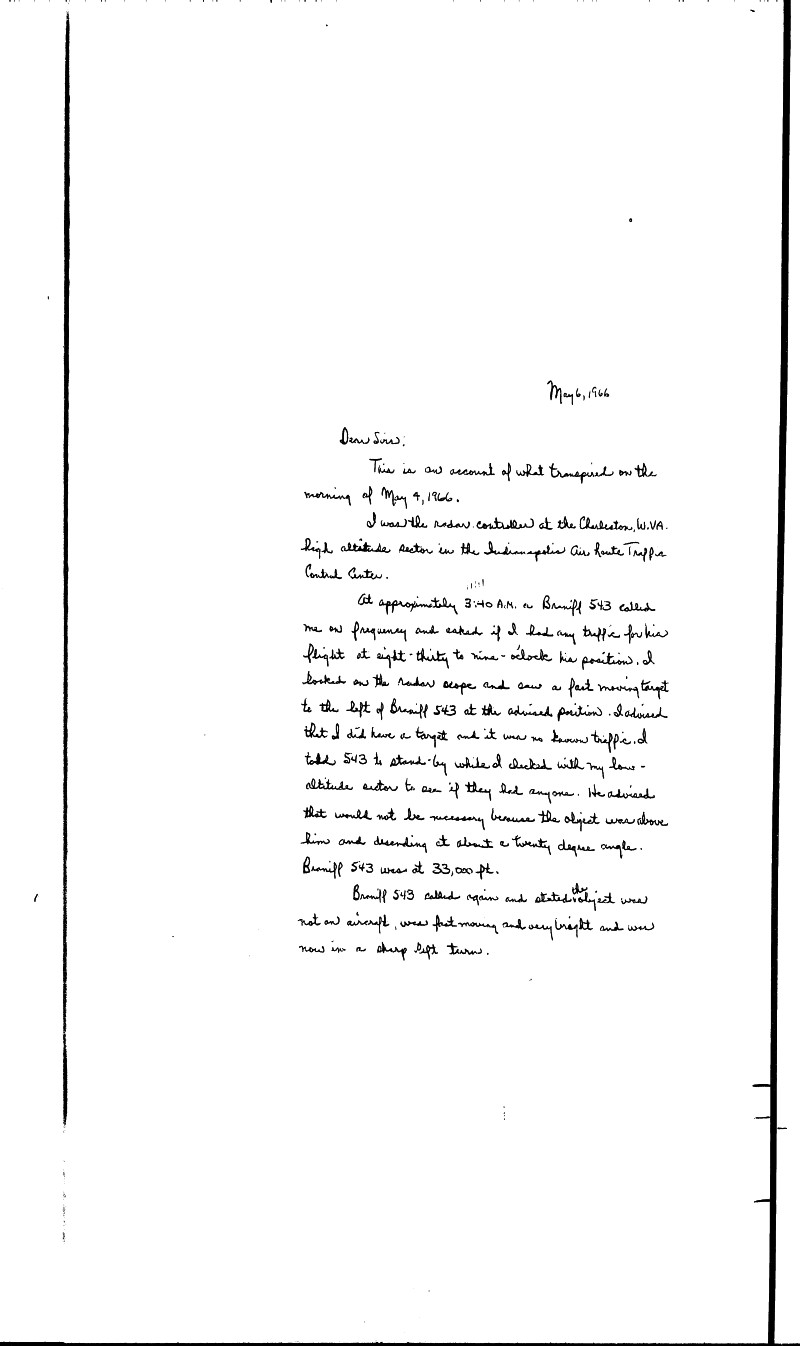 May 6, 1966
Dear Sirs:
This is an account of what transpired on the
morning of May 4, 1966.
I was the radar controller at the Charleston, W.VA.
high altitude sector in the Indianapolis Air Route Traffic
Control Center.
At approximately 3:40 A.M. a Braniff 543 called
me on frequency and asked if I had any traffic for his
flight at eight-thirty to nine-o'clock his position. I
looked on the radar scope and saw a fast moving target
to the left of Braniff 543 at the advised position. I advised
that I did have a target and it was no known traffic. I
told 543 to stand-by while I checked with my low-
altitude sector to see if they had anyone. He advised
that would not be necessary because the object was above
him and desending at about a twenty degree angle.
Braniff 543 was at 33,000 ft.
Braniff 543 called again and stated the object was
not an aircraft, was fast moving and very bright and was
now in a sharp left turn.